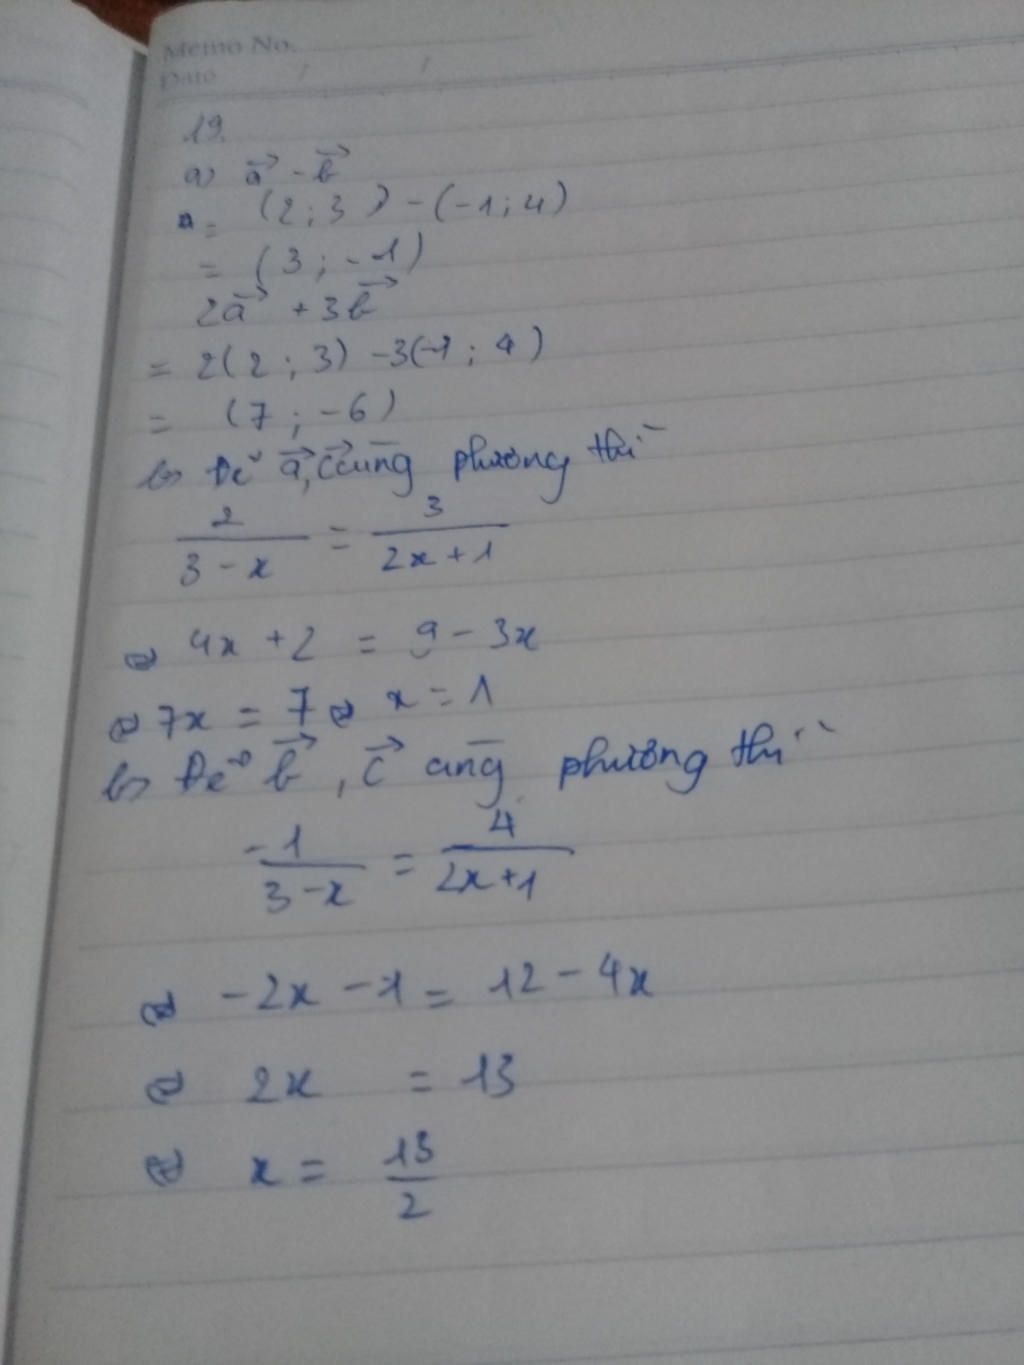 Memo No.
Date / /
19.
a) a⃗ - b⃗
= (2 ; 3) - (-1 ; 4)
= (3 ; -1)
2a⃗ + 3b⃗
= 2(2 ; 3) -3(-1 ; 4)
= (7 ; -6)
b) Để a⃗, c⃗ cùng phương thì
2/(3 - x) = 3/(2x + 1)
⇔ 4x + 2 = 9 - 3x
⇔ 7x = 7 ⇔ x = 1
b) Để b⃗, c⃗ cùng phương thì
-1/(3 - x) = 4/(2x + 1)
⇔ -2x - 1 = 12 - 4x
⇔ 2x = 13
⇔ x = 13/2